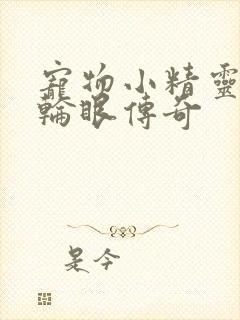 寵物小精靈
輪眼傳奇
是今